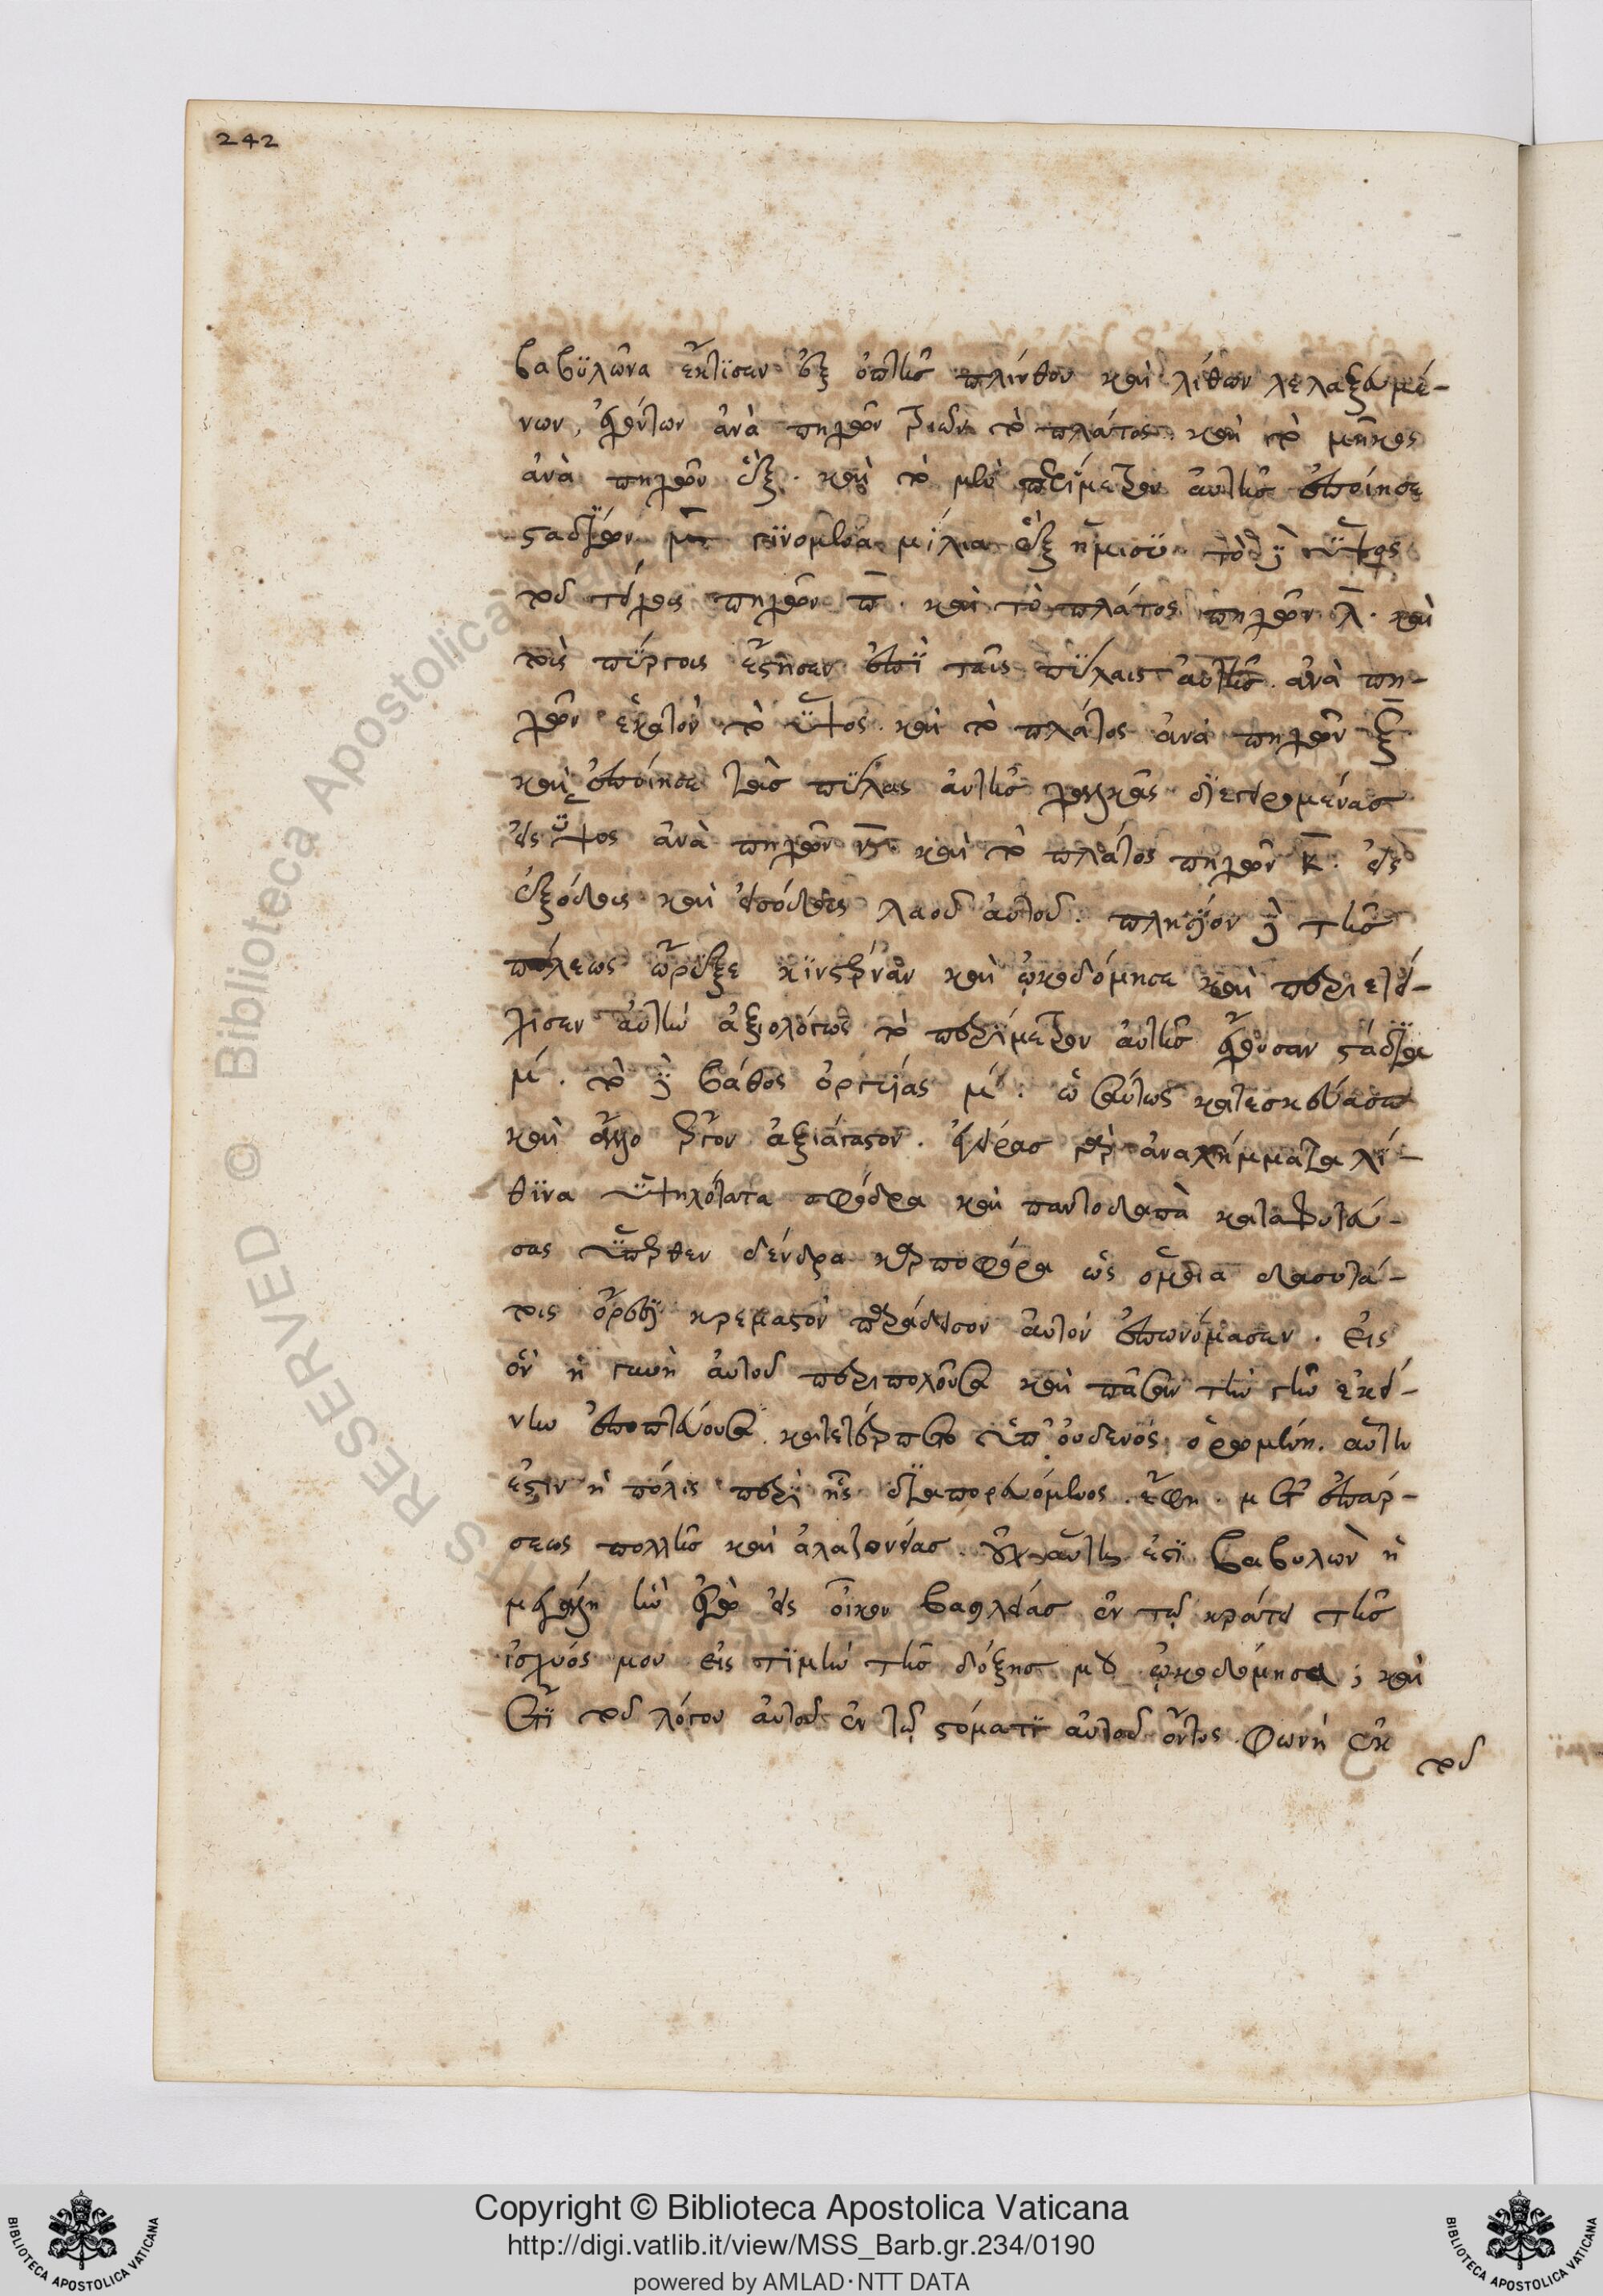 242
βαβυλῶνα ἔκτισεν ἐξ ὀπτῆς πλίνθου καὶ λίθων λελαξευμέ-
νων, ἐχόντων ἀνὰ πηχῶν τριῶν τὸ πλάτος. καὶ τὸ μῆκος
ἀνὰ πηχῶν ἕξ. καὶ τὸ μὲν περίμετρον αὐτῆς ἐποίησε
σταδίων μ̅ γινόμενα μίλια ἓξ ἥμισυ τὸ δὲ ὕψος
τοῦ τείχους πηχῶν π̅. καὶ τὸ πλάτος πηχῶν λ̅. καὶ
τοὺς πύργους ἔστησεν ἐπὶ ταῖς πύλαις αὐτῆς. ἀνὰ πη-
χῶν ἑκατὸν τὸ ὕψος. καὶ τὸ πλάτος ἀνὰ πηχῶν ξ̅
καὶ ἐποίησε τὰς πύλας αὐτῆς χαλκᾶς διεγειρομένας
εἰς ὕψος ἀνὰ πηχῶν ν̅. καὶ τὸ πλάτος πηχῶν κ̅. εἰς
ἐξόδους καὶ εἰσόδους λαοῦ αὐτοῦ. πλησίον δὲ τῆς
πόλεως ὤρυξε κινστέρναν καὶ ᾠκοδόμησε καὶ περιετεί-
χισεν αὐτὴν ἀξιολόγως τὸ περίμετρον αὐτῆς ἔχουσαν στάδια
μ΄. τὸ δὲ βάθος ὀργυίας μ΄. ὡσαύτως κατεσκεύασε
καὶ ἄλλο ἔργον ἀξιάγαστον. ἐγείρας γὰρ ἀναλήμματα λί-
θινα ὑψηλότατα σφόδρα καὶ παντοδαπὰ καταφυτεύ-
σας ὕπερθεν δένδρα καρποφόρα ὡς ὅμοια δασυτά-
τοις ὄρεσι κρεμαστὸν παράδεισον αὐτὸν ἐπωνόμασεν. εἰς
ὃν ἡ γυνὴ αὐτοῦ περιπολοῦσα καὶ πᾶσαν τὴν γῆν ἐκεί-
νην ἐποπτεύουσα κατετέρπετο ὑπ' οὐδενὸς ὁρωμένη. αὕτη
ἐστιν ἡ πόλις περὶ ἧς διαπορευόμενος ἔφη. μετ' ἐπάρ-
σεως πολλῆς καὶ ἀλαζονείας. οὐχ αὕτη ἐστὶ βαβυλὼν ἡ
μεγάλη ἣν ἐγὼ εἰς οἶκον βασιλείας ἐν τῷ κράτει τῆς
ἰσχύος μου εἰς τιμὴν τῆς δόξης μου ᾠκοδόμησα; καὶ
ἔτι τοῦ λόγου αὐτοῦ ἐν τῷ στόματι αὐτοῦ ὄντος. φωνὴ ἐκ
τοῦ
RESERVED © Biblioteca Apostolica
Copyright © Biblioteca Apostolica Vaticana
http://digi.vatlib.it/view/MSS_Barb.gr.234/0190
powered by AMLAD·NTT DATA
BIBLIOTECA APOSTOLICA VATICANA
BIBLIOTECA APOSTOLICA VATICANA